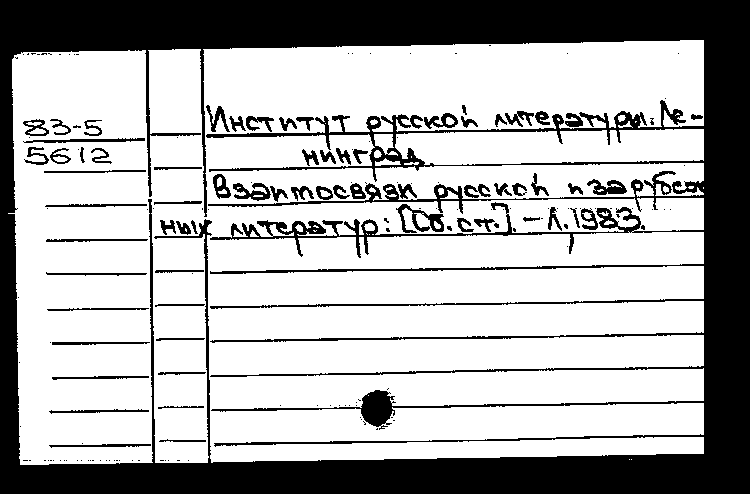 83-5
5612
Институт русской литературы. Ле-
нинград.
Взаимосвязи русской и зарубеж
ных литератур: [Сб. ст.]. – Л., 1983.